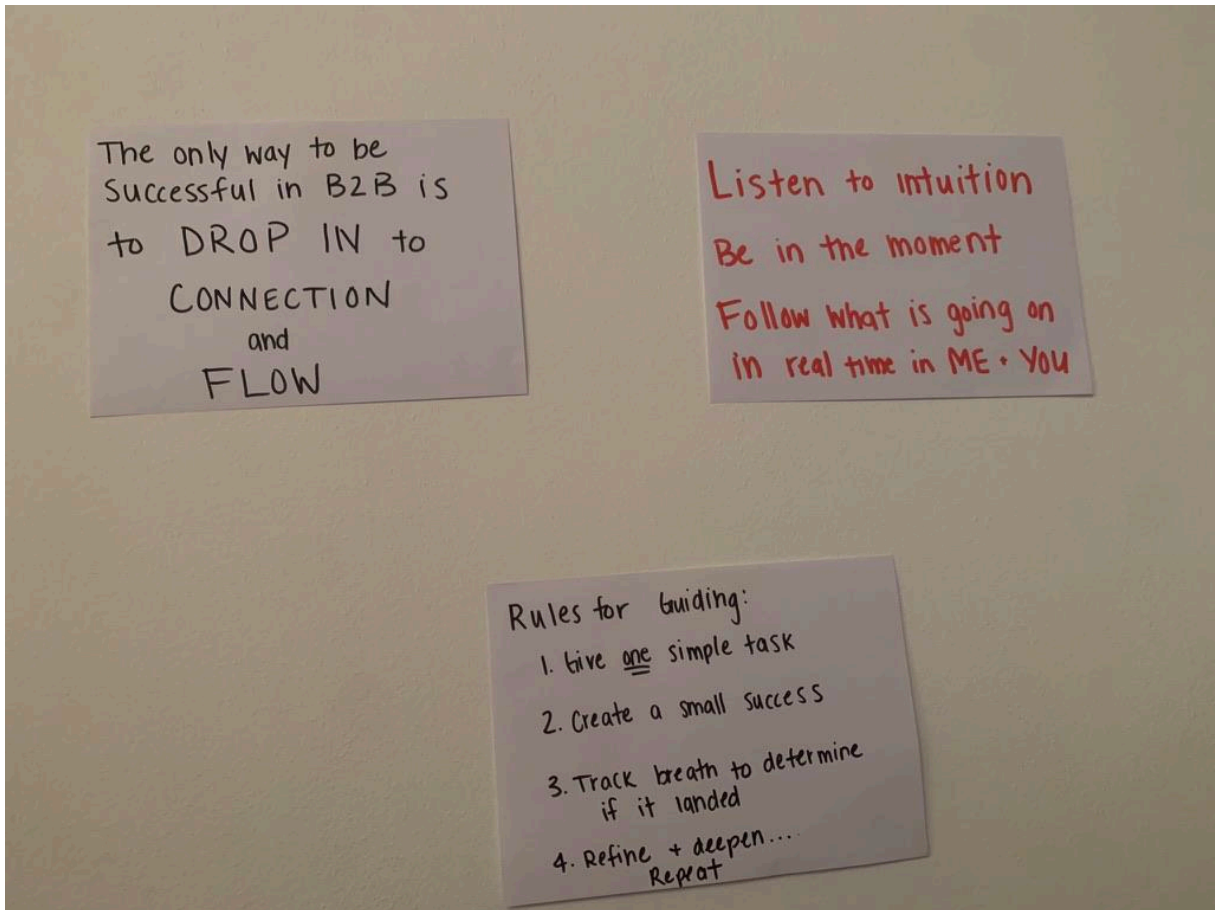 The only way to be
Successful in B2B is
to DROP IN to
CONNECTION
and
FLOW
Listen to Intuition
Be in the moment
Follow what is going on
in real time in ME + YOU
Rules for Guiding:
1. Give one simple task
2. Create a small success
3. Track breath to determine
if it landed
4. Refine + deepen....
Repeat